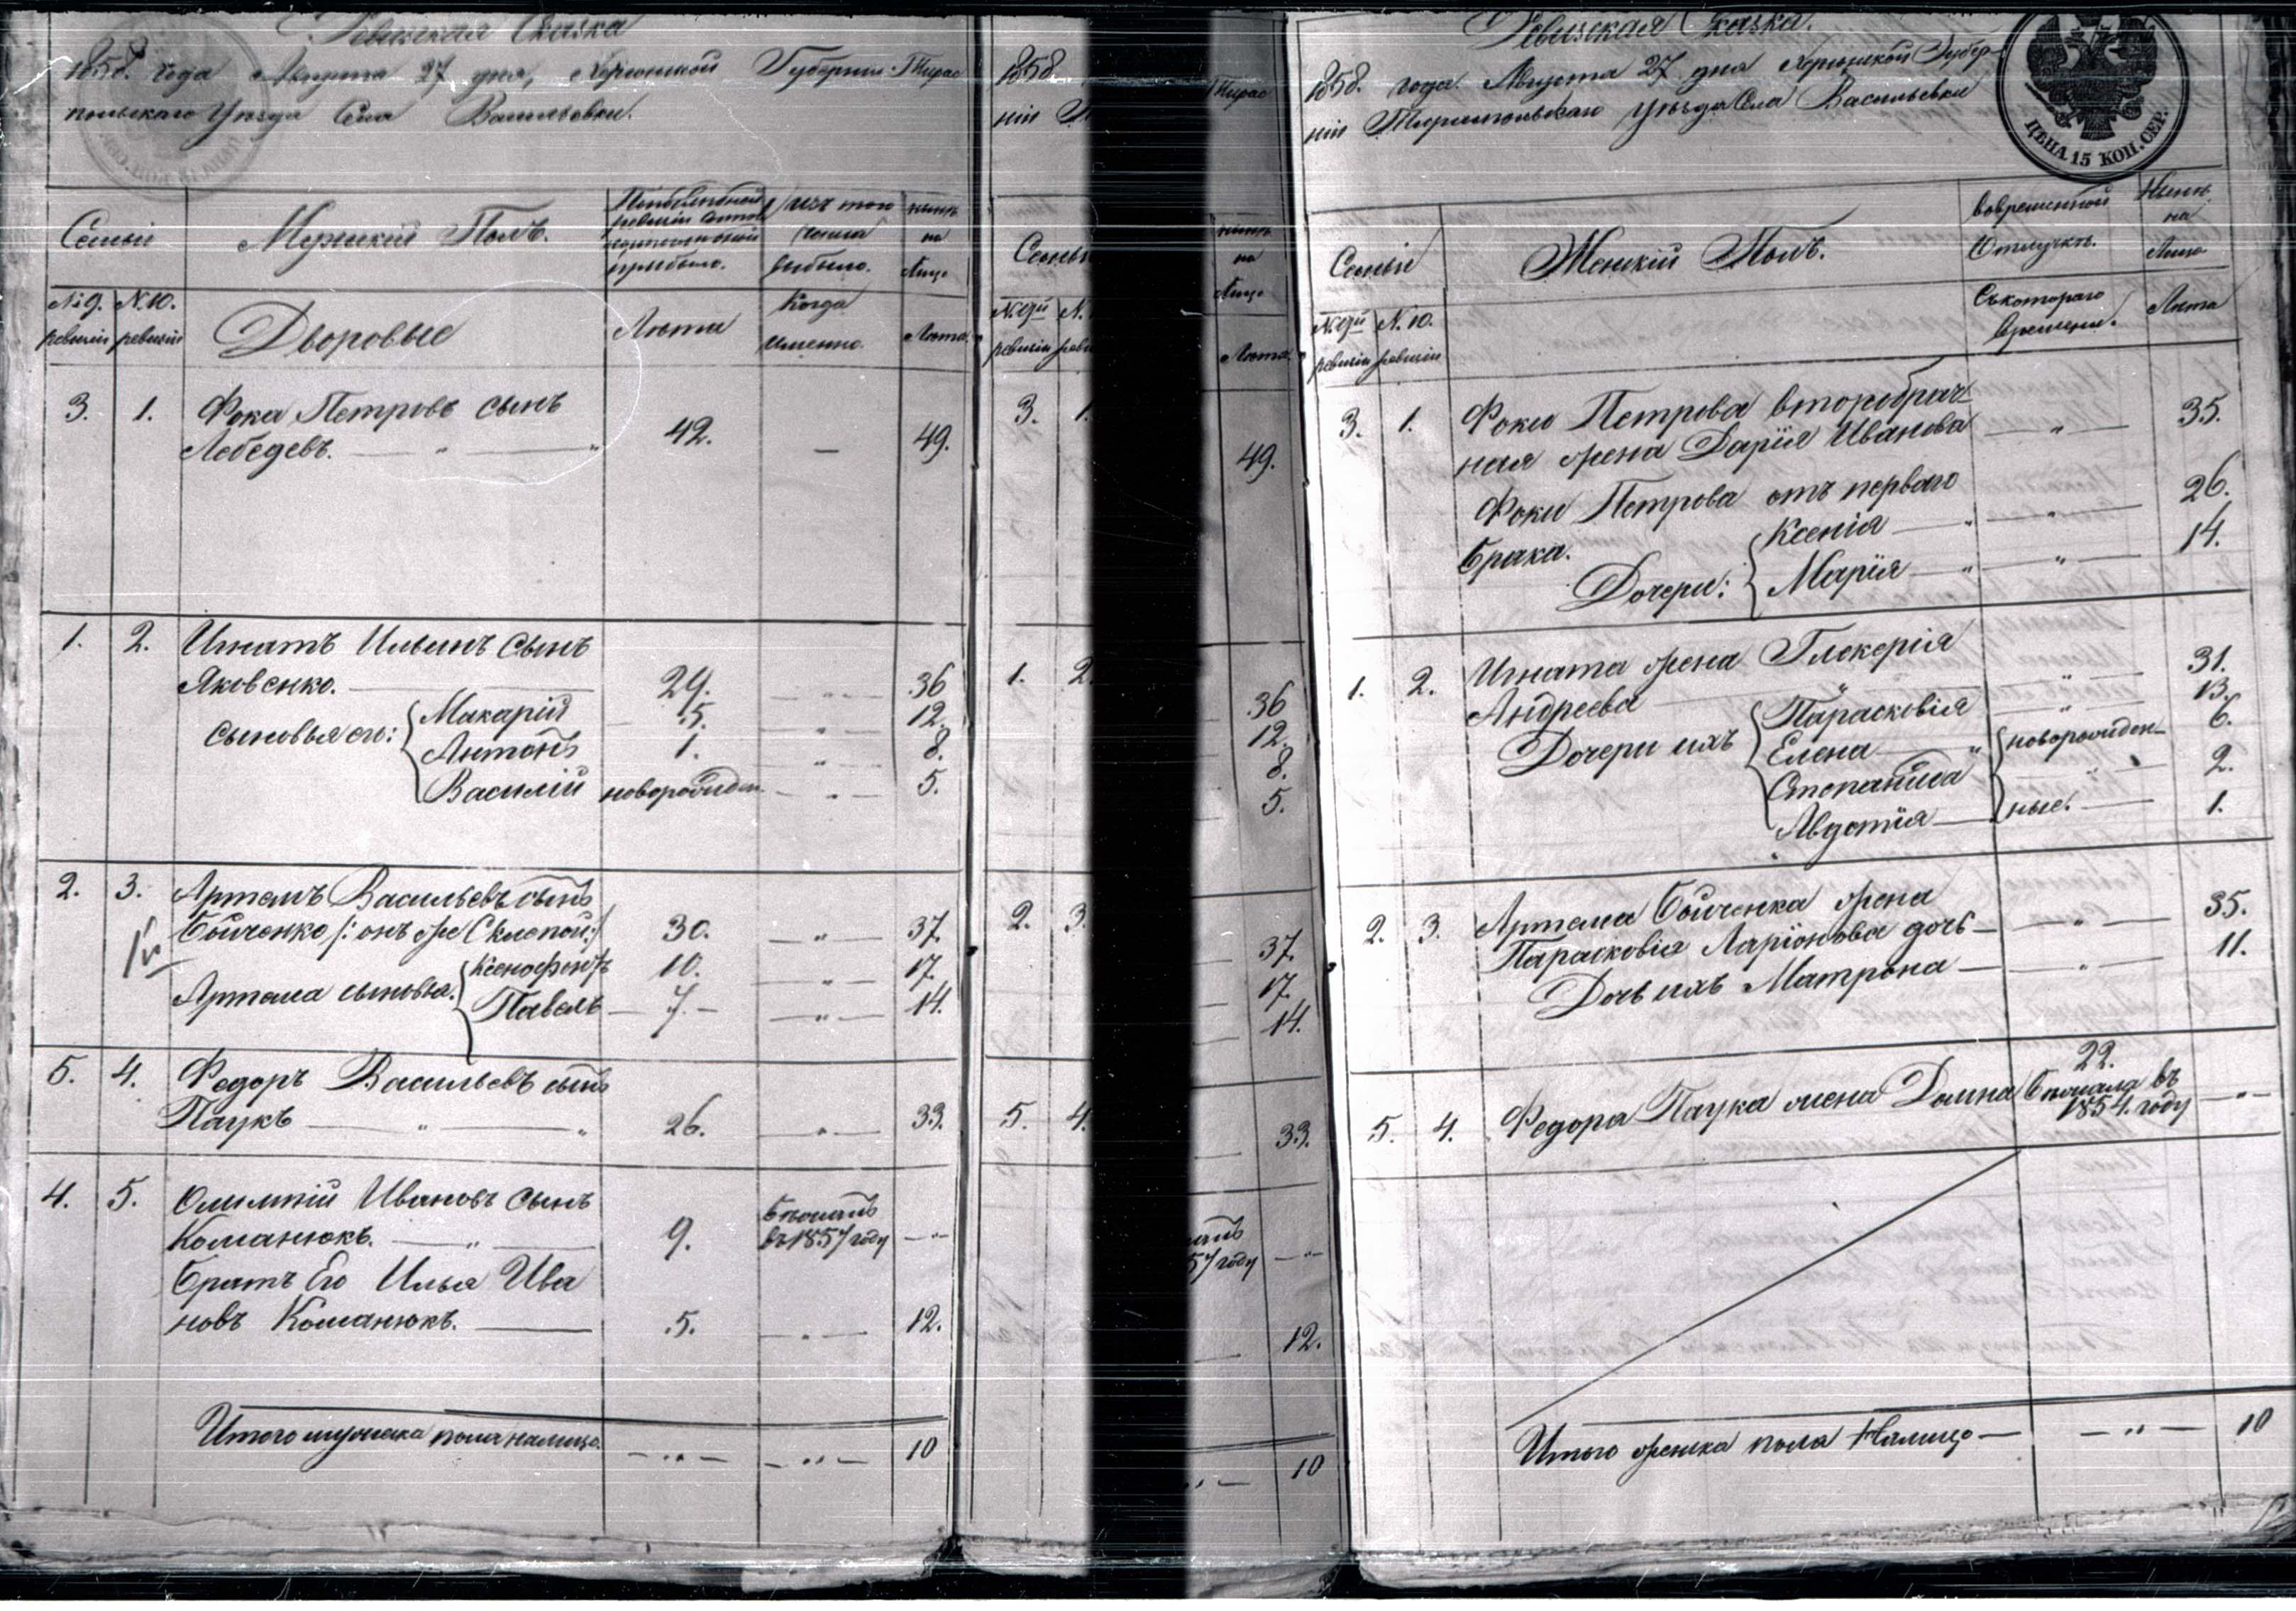 Ревизская Сказка
1858. года Августа 27 дня, Херсонской Губернии Тирас
польскаго Уезда Села Васильевки.
Семьи
Мужеский Полъ.
По последней
ревизии состо
яло и после оной
прибыло.
Изъ того
числа
выбыло.
ныне
на
Лицо
№ 9. № 10.
ревизіи ревизіи
Дворовые
Лета
Когда
именно.
Лета.
3. 1. Фока Петровъ сынъ
Лебедевъ. — " — " 42. — 49.
1. 2. Игнатъ Ильинъ Сынъ
Яковенко. — 29. — " — 36
Сыновья его: Макарій 5. — " — 12.
Антонъ 1. " 8.
Василій новорожден. — " — 5.
2. 3. Артемъ Васильевъ сынъ
Бойченко /: онъ же Склепой :/ 30. — " — 37.
Артема сыновья. Ксенофонтъ 10. — " — 17.
Павелъ — 7. — — " — 14.
5. 4. Федоръ Васильевъ сынъ
Паукъ — " — " 26. — " — 33.
4. 5. Олимпій Ивановъ сынъ
Команюкъ. — " — 9. бежалъ
въ 1857 году — " —
Братъ Его Илья Ива
новъ Команюкъ. — 5. — " — 12.
Итого мужеска пола налицо. — " — — " — 10
1858
ніи
Семьи
№ 9й N.
ревизіи реви
3. 1.
1. 2.
2. 3.
5. 4.
Тирас
ныне
на
Лицо
Лета.
49.
36
12.
8.
5.
37.
17.
14.
33.
57 году — " —
12.
" — 10
Ревизская Сказка.
1858. года Августа 27 дня Херсонской Губер-
ніи Тираспольскаго Уезда Села Васильевки
ЦѢНА 15 КОП. СЕР.
Семьи
Женскій Полъ.
вовременной
Отлучке.
Ныне
на
Лицо
№ 9й N. 10.
ревизіи ревизіи
Съкотораго
времени.
Лета
3. 1. Фоки Петрова второбрач-
ная жена Дарія Иванова — " — 35.
Фоки Петрова отъ перваго
брака.
Дочери: Ксенія — " — " — 26.
Марія — " — " — 14.
1. 2. Игната жена Гликерія
Андреева — " — 31.
Дочери ихъ Парасковія " 13.
Елена — " новорожден- 6.
Степанида — " — 2.
Авдотія — ные. — 1.
2. 3. Артема Бойченка жена
Парасковія Ларіонова дочь — — " — 35.
Дочь ихъ Матрона — — " — 11.
5. 4. Федора Паука жена Домна 22.
бежала въ
1854. году — " —
Итого женска пола Налицо — — " — 10